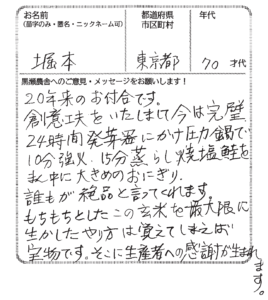 お名前
(苗字のみ・匿名・ニックネーム可)
都道府県
市区町村
年代
堀本
東京都
70才代
黒瀬農舎へのご意見・メッセージをお願いします!
20年来のお付合です。
創意工夫をいたしまして今は完璧
24時間発芽器にかけ圧力鍋で
10分強火、15分蒸らし焼塩鮭を
まん中に大きめのおにぎり。
誰もが絶品と言ってくれます。
もちもちとしたこの玄米を最大限に
生かしたやり方は覚えてしまえば
宝物です。そこに生産者への感謝が生まれ
ます。